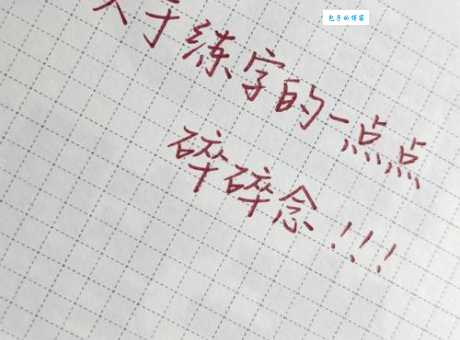 包子的博客
关于练字的一点点
碎碎念!!!